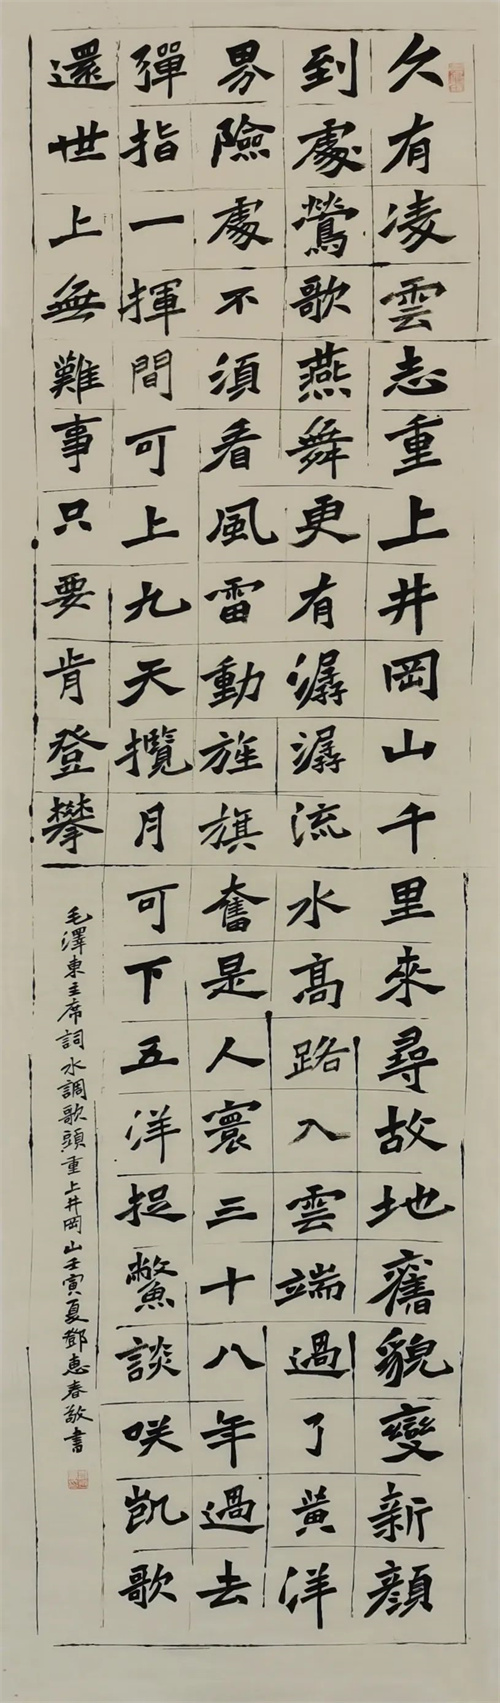 久有凌雲志重上井岡山千里來尋故地舊貌變新顏
到處鶯歌燕舞更有潺潺流水高路入雲端過了黃洋
界險處不須看風雷動旌旗奮是人寰三十八年過去
彈指一揮間可上九天攬月可下五洋捉鱉談咲凱歌
還世上無難事只要肯登攀
毛澤東主席詞水調歌頭重上井岡山壬寅夏鄧惠春敬書